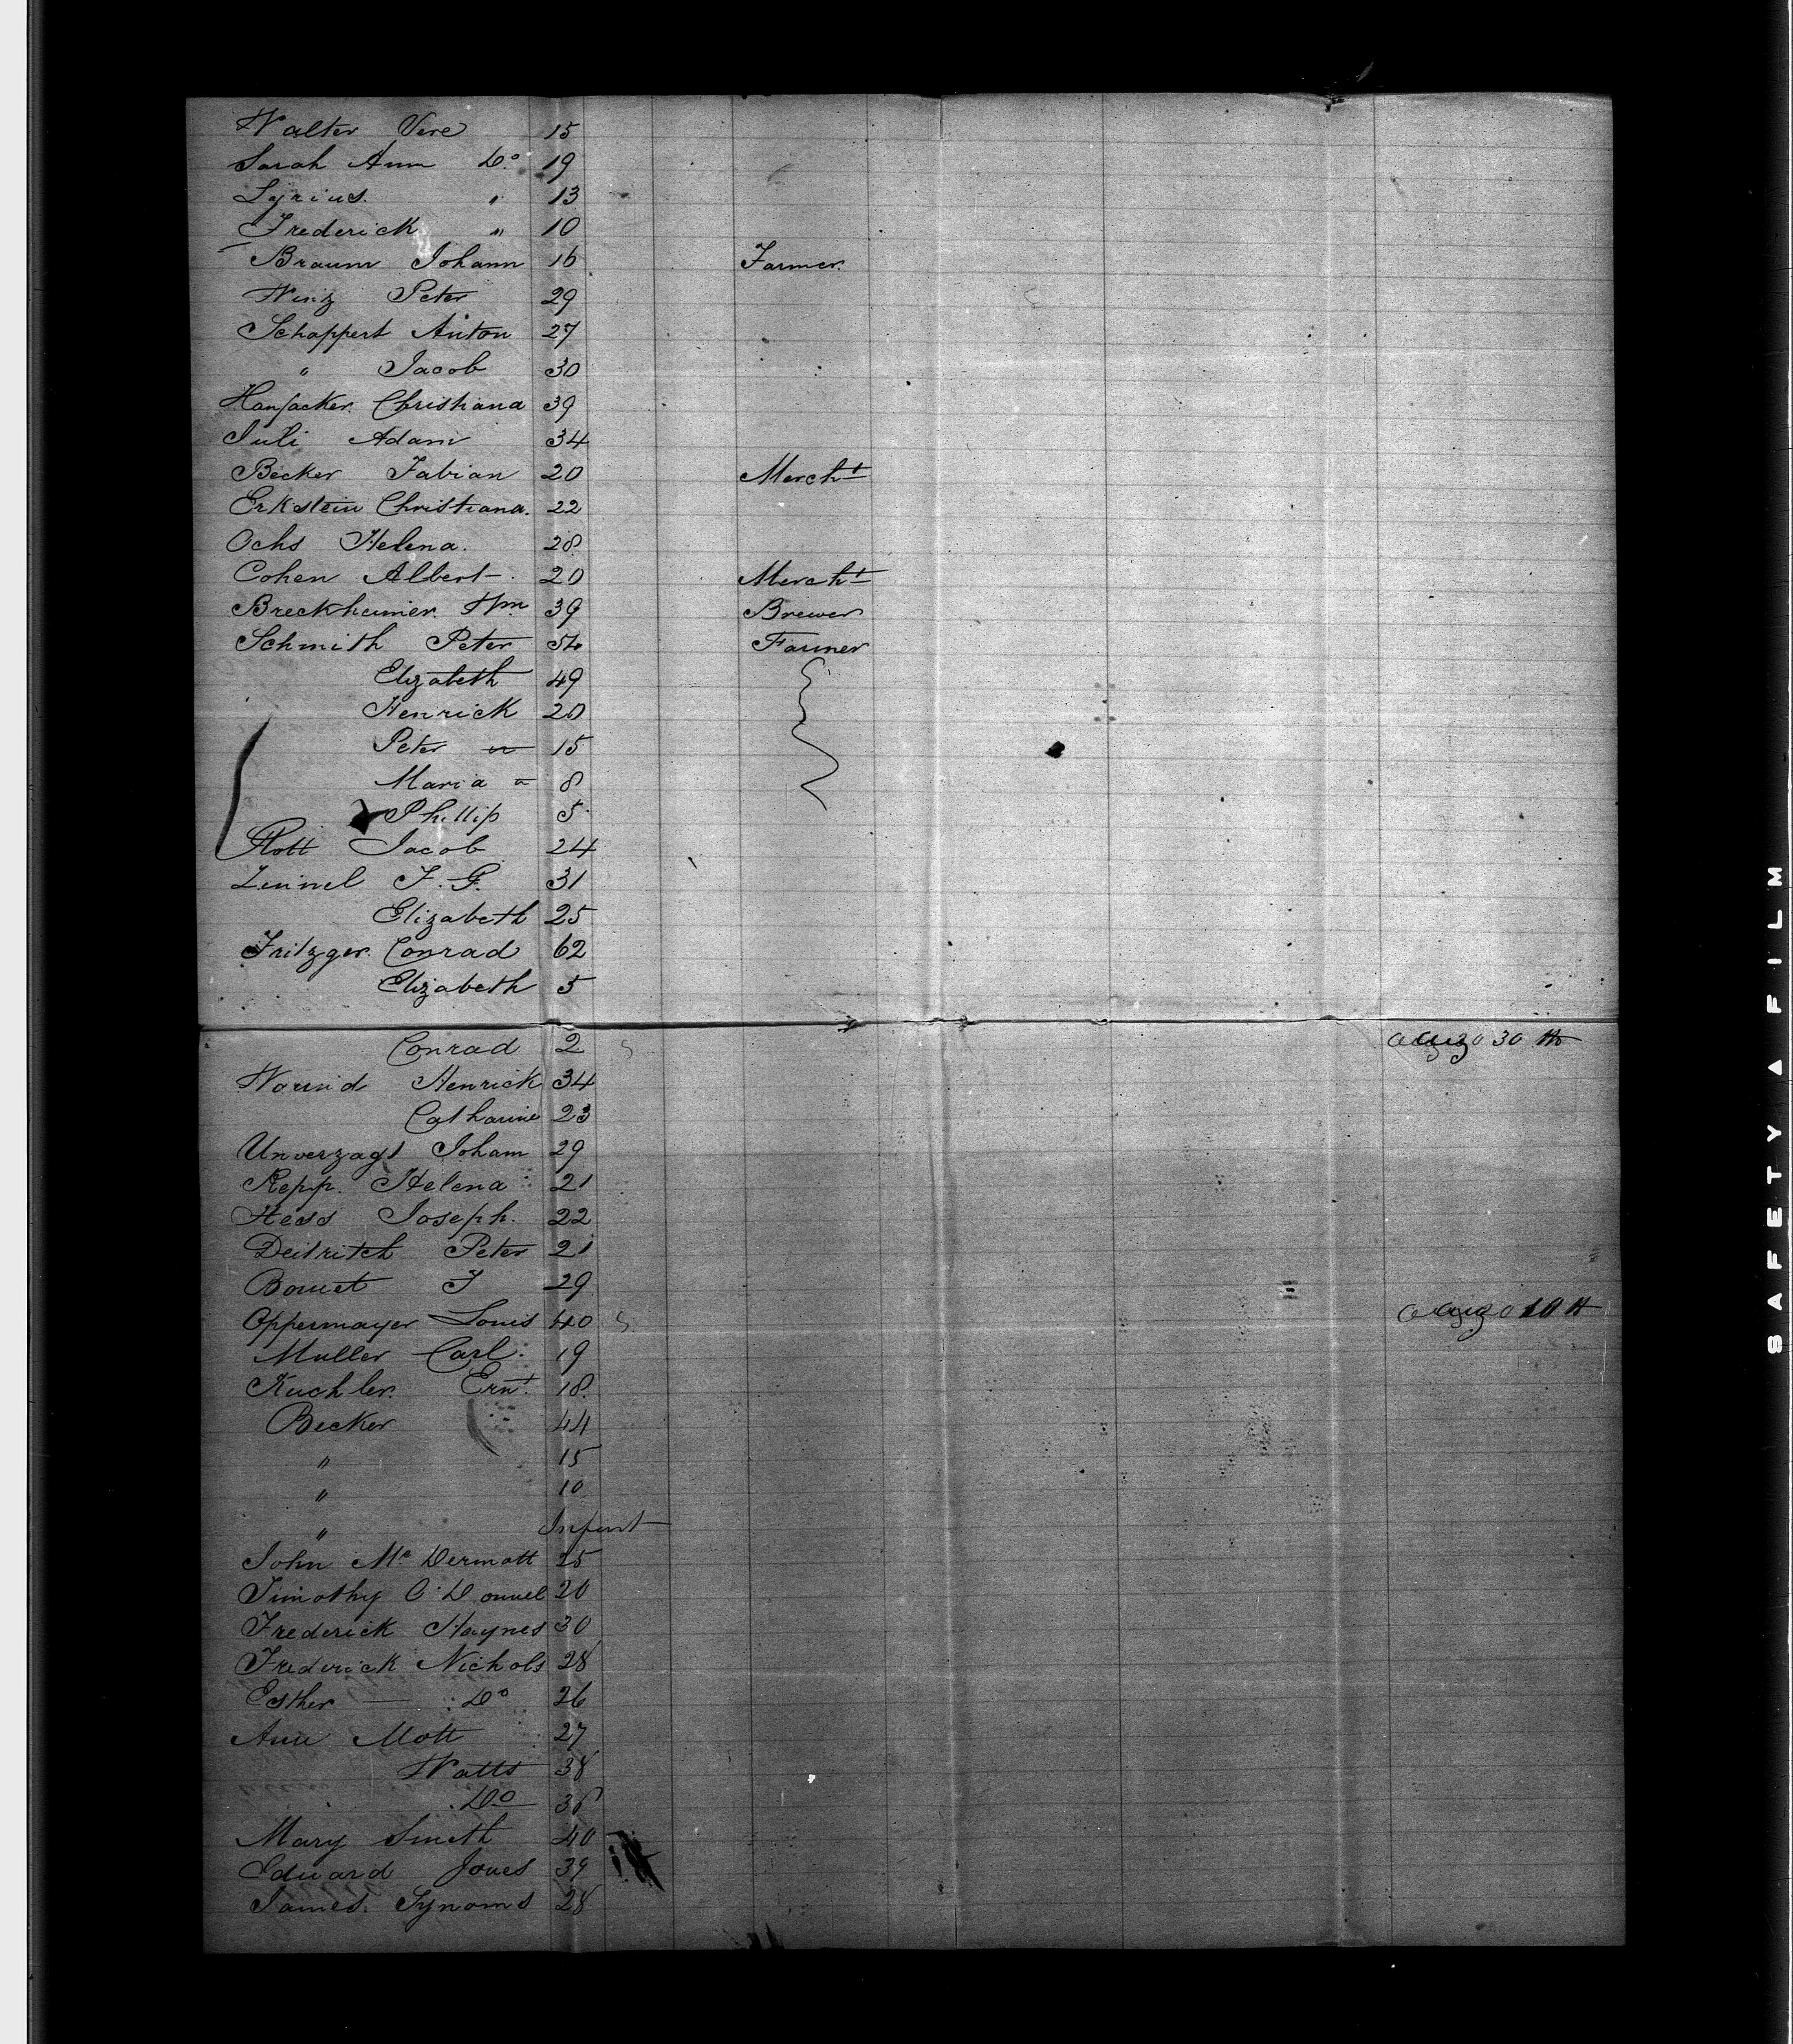 Walter Vere 15
Sarah Ann Do 19
Lyrius. " 13
Frederick " 10
Braum Johann 16 Farmer.
Winz Peter 29
Schappert Anton 27
" Jacob 30
Christiana 39
Juli Adam 34
Becker Fabian 20 Mercht
Erkstein Christiana. 22
Ochs Helena. 28
Cohen Albert 20 Mercht
Breckheimer. Wm 39 Brewer
Schmith Peter 54 Farmer
Elizabeth 49
Henrick 20
Peter 15
Maria 8
Phillip 5
Plott Jacob 24
Zinnel J. G. 31
Elizabeth 25
Fritzger. Conrad 62
Elizabeth 5
Conrad 2 30 th
Henrick 34
Catharine 23
Unverzagt Joham 29
Repp. Helena 21
Hess Joseph. 22
Deitritch Peter 21
Bouset J 29
Oppermayer Louis 40
Muller Carl. 19
Kuchler. Ernt. 18.
Becker 44
" 15
" 10
" Infant
John Mc Dermott 25
Timothy O'Donnel 20
Frederick Haynes 30
Frederick Nichols 28
Esther — Do 26
Ann Mott 27
Watts 38
Do 36
Mary Smith 40
Edward Jones 39
James. Synoms 28
SAFETY A FILM